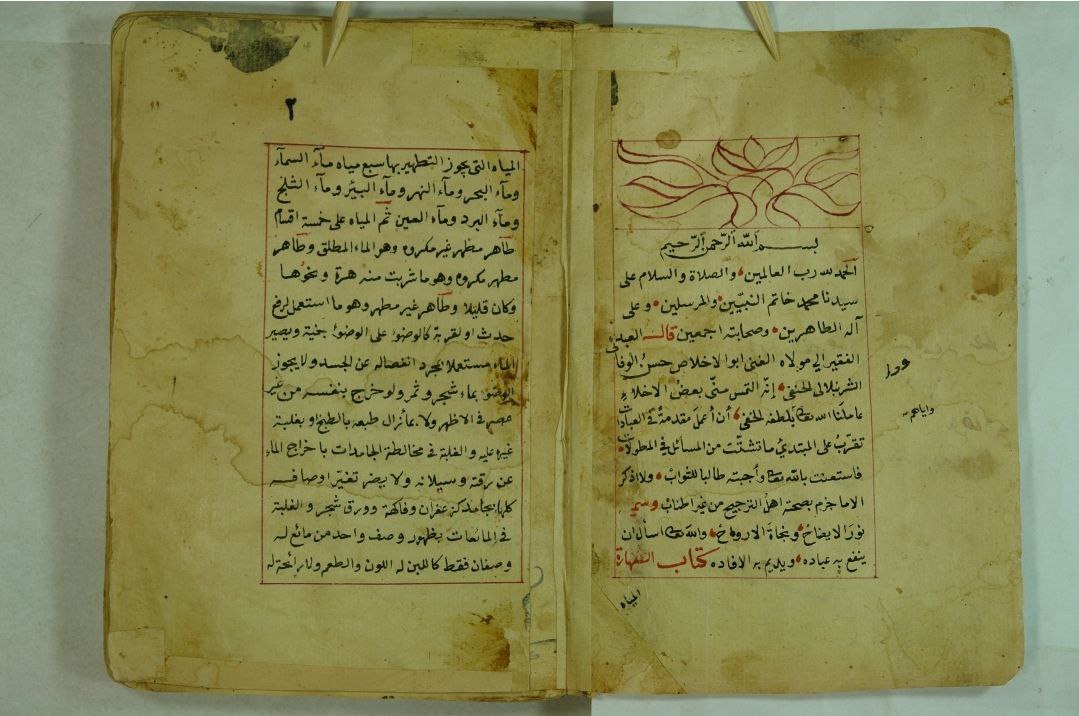 بسم الله الرحمن الرحيم
الحمد لله رب العالمين والصلاة والسلام على
سيدنا محمد خاتم النبيين والمرسلين وعلى
آله الطاهرين وصحابته اجمعين قال العبد
الفقير الى مولاه الغنى ابو الاخلاص حسن الوفا
الشرنبلالى الحنفى إنه التمس منى بعض الاخلاء
عاملنا الله بلطفه الخفى أن أعمل مقدمة فى العبادات
تقرب على المبتدئ ما تشتت من المسائل فى المطولات
فاستعنت بالله وأجبته طالبا للثواب ولا اذكر
الا ما جزم بصحته اهل الترجيح من غير اطناب وسم
نور الايضاح ونجاة الارواح والله اسأل ان
ينفع به عباده ويديم به الافاده كتاب الطهارة
المياه
واياهم
٢
المياه التى يجوز التطهير بها سبع مياه مآء السمآء
ومآء البحر ومآء النهر ومآء البئر ومآء الثلج
ومآء البرد ومآء العين ثم المياه على خمسة اقسام
طاهر مطهر غير مكروه وهو الماء المطلق وطاهر
مطهر مكروه وهو ما شربت منه هرة ونحوها
وكان قليلا وطاهر غير مطهر وهو ما استعمل لرفع
حدث او لقربة كالوضوء على الوضوء بنية ويصير
الماء مستعملا بمجرد انفصاله عن الجسد ولا يجوز
الوضوء بماء شجر وثمر ولو خرج بنفسه من غير
عصر فى الاظهر ولا بماء زال طبعه بالطبخ او بغلبة
غيره عليه والغلبة فى مخالطة الجامدات باخراج الماء
عن رقته وسيلانه ولا يضر تغير اوصافه
كلها بجامد كزعفران وفاكهة وورق شجر والغلبة
فى المائعات بظهور وصف واحد من مائع له
وصفان فقط كاللبن له اللون والطعم ولا رائحة له